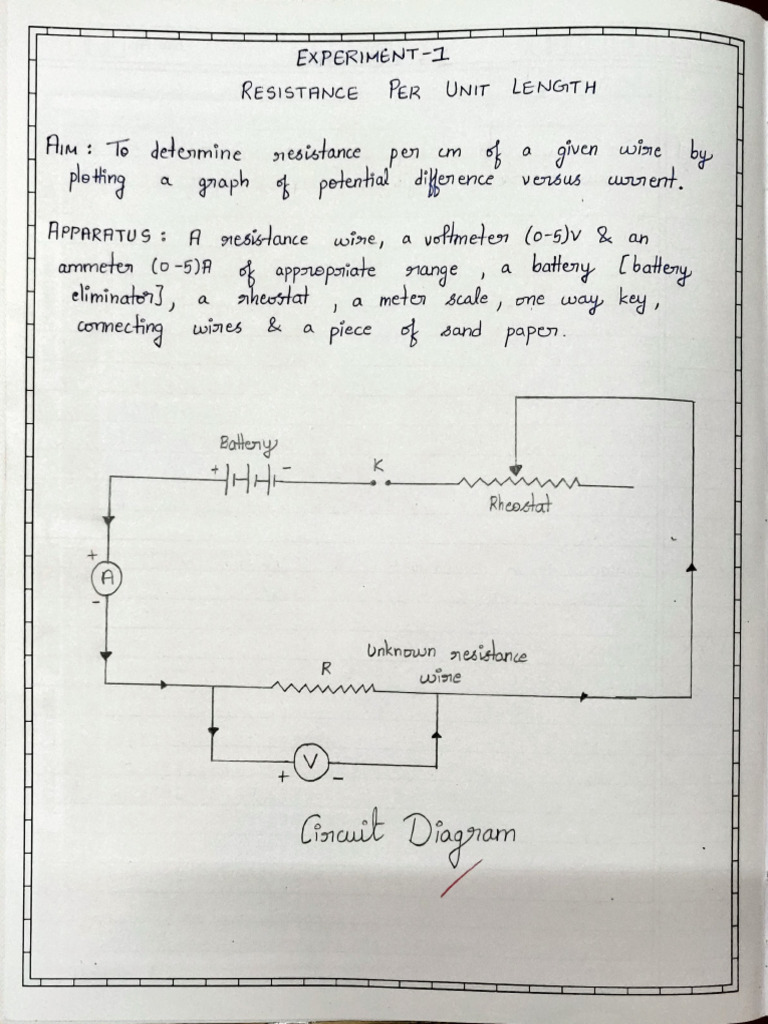 EXPERIMENT-1
RESISTANCE PER UNIT LENGTH
AIM : To determine resistance per cm of a given wire by
plotting a graph of potential difference versus current.
APPARATUS : A resistance wire, a voltmeter (0-5)V & an
ammeter (0-5)A of appropriate range, a battery [battery
eliminator], a rheostat, a meter scale, one way key,
connecting wires & a piece of sand paper.
Battery
+ -
K
Rheostat
+
A
-
R
Unknown resistance
wire
+ V -
Circuit Diagram